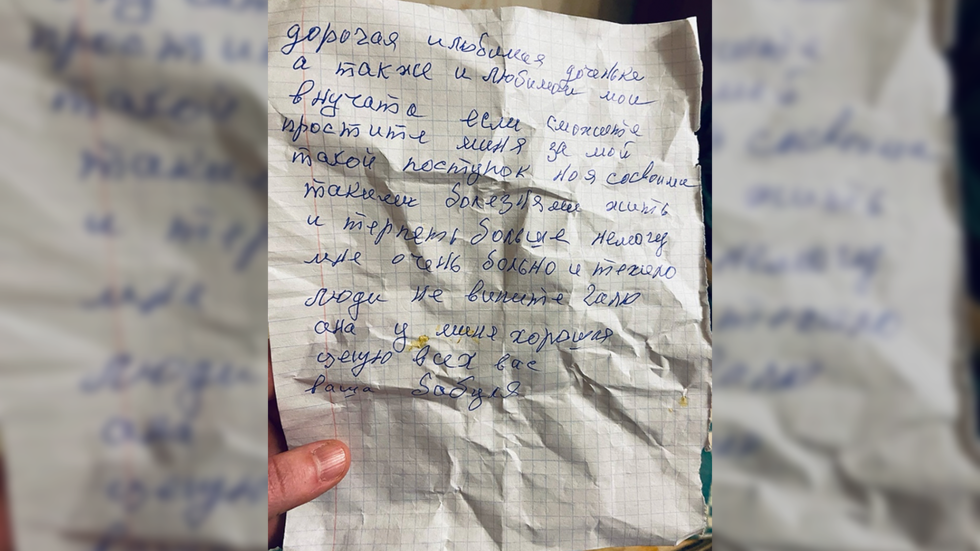 дорогая и любимая доченька
а также и любимаи мои
внучата если сможите
простите миня за мой
такой поступок но я сосвоими
такими болезнями жить
и терпеть больше немогу
мне очень больно и тежело
люди не вините Галю
она у миня хорошая
цецую всех вас
ваша бабуля